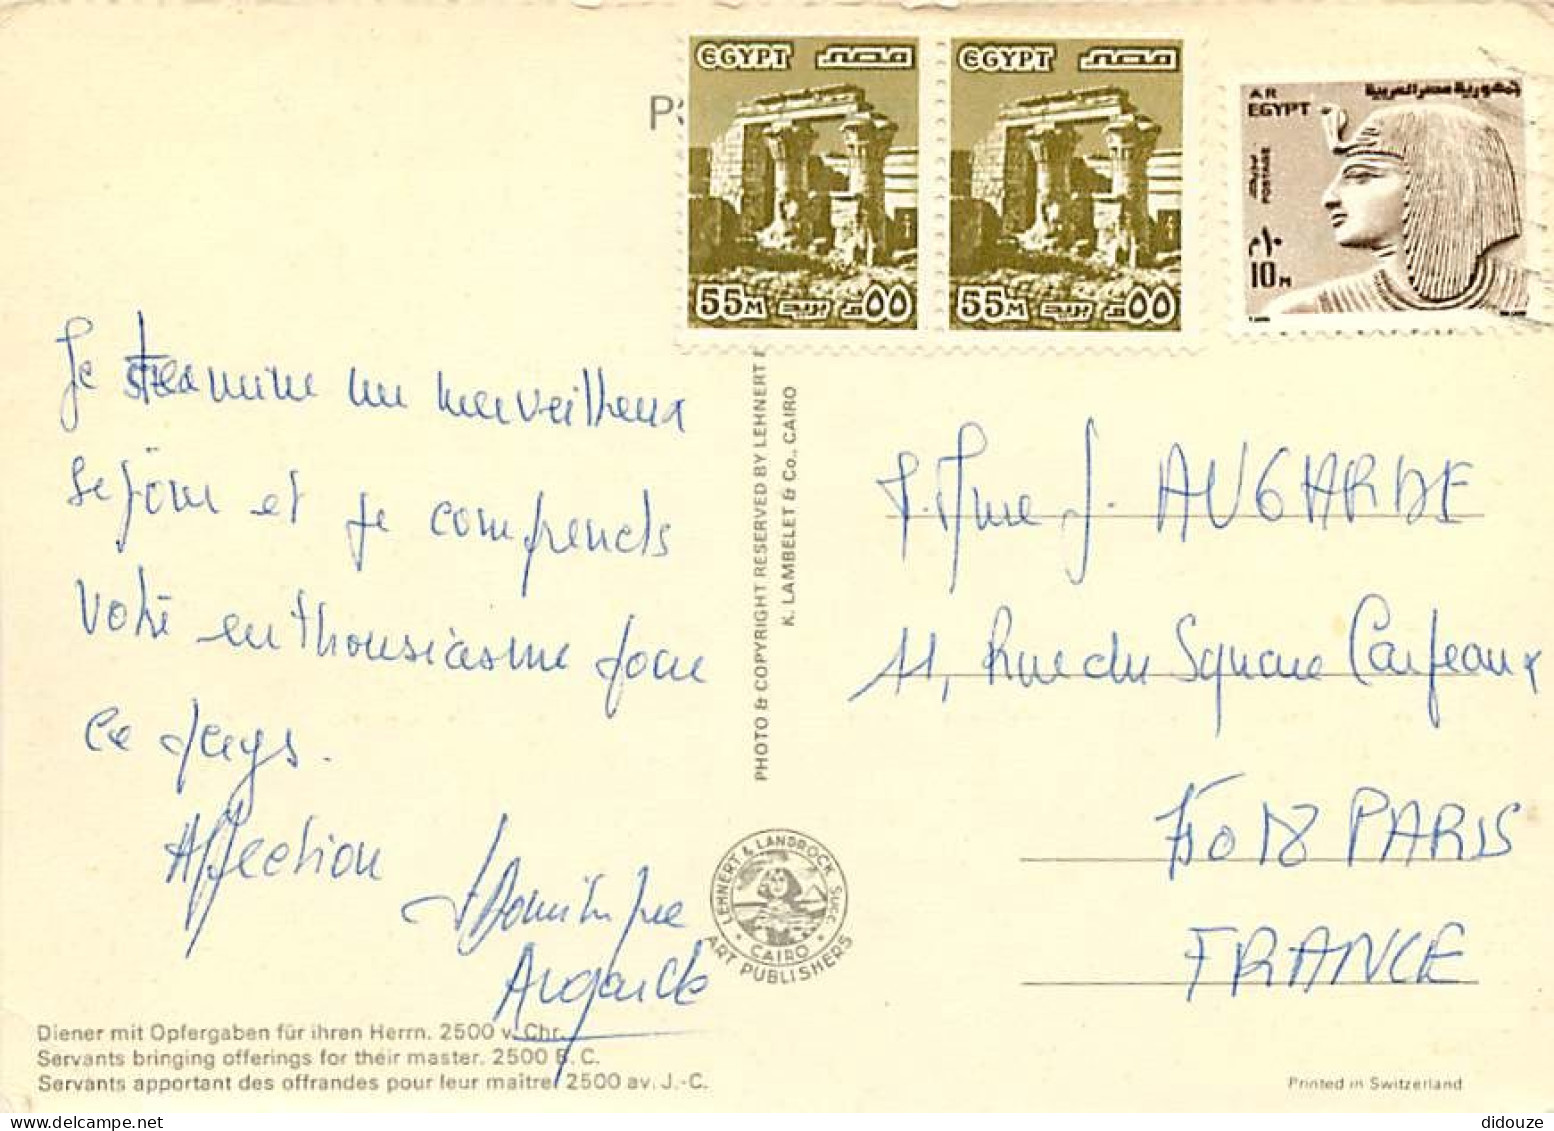 EGYPT مصر
55M بريد ٥٥م
EGYPT مصر
55M بريد ٥٥م
AR
EGYPT
جمهورية مصر العربية
بريد
POSTAGE
١٠م
10M
Je termine un merveilleux
séjour et je comprends
votre enthousiasme pour
ce pays.
Affection
Dominique
Augarde
PHOTO & COPYRIGHT RESERVED BY LEHNERT
K. LAMBELET & Co., CAIRO
LEHNERT & LANDROCK SUCC.
CAIRO
ART PUBLISHERS
Mme J. AUGARDE
11, Rue du Square Carpeaux
75018 PARIS
FRANCE
Diener mit Opfergaben für ihren Herrn. 2500 v. Chr.
Servants bringing offerings for their master. 2500 B.C.
Servants apportant des offrandes pour leur maître 2500 av. J.-C.
Printed in Switzerland
didouze